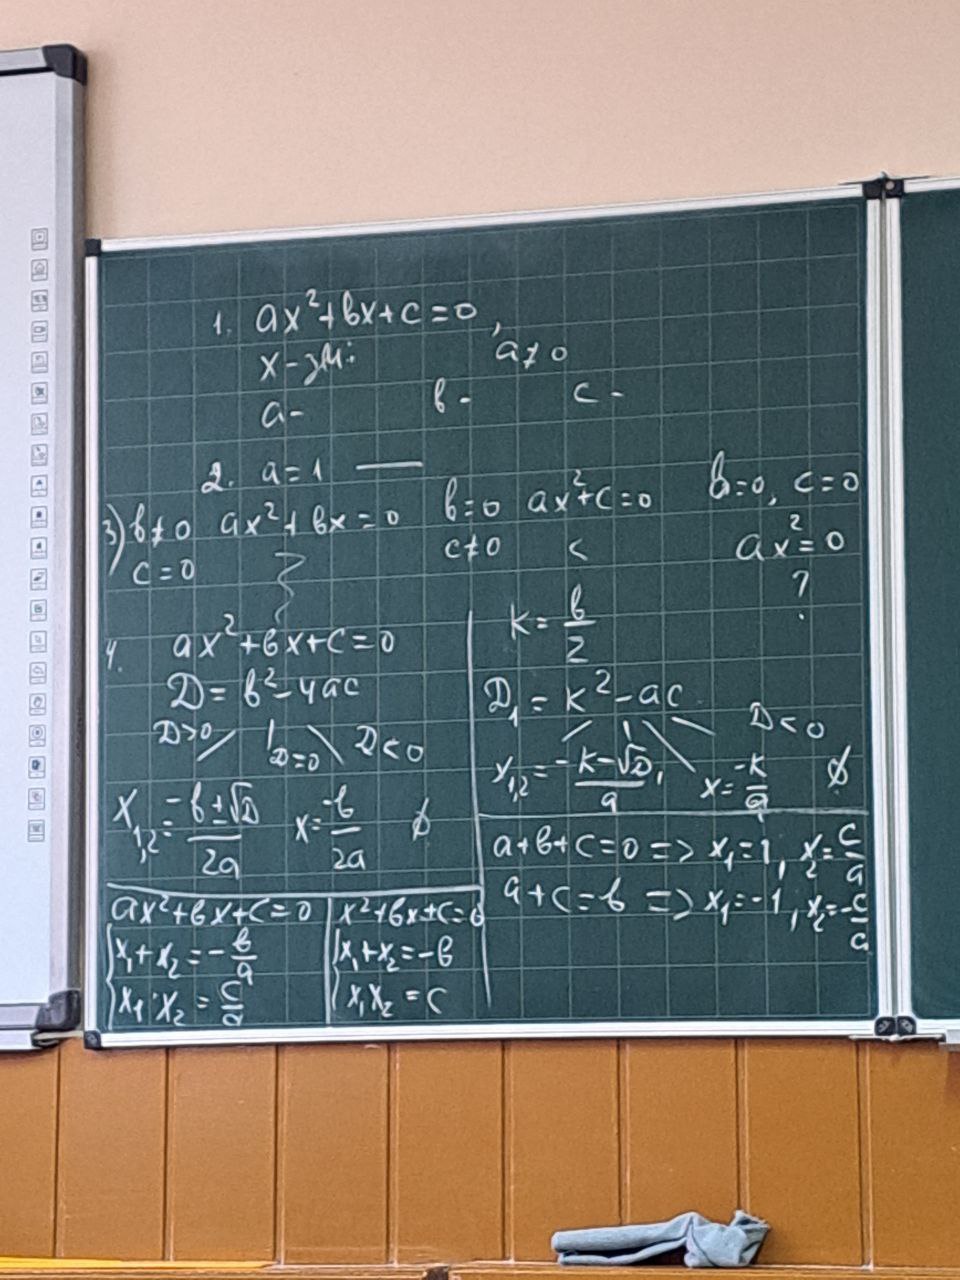 1. ax²+bx+c=0, a≠0
x-зм:
a- b- c-
2. a=1 —
3) b≠0 ax²+bx=0 b=0 ax²+c=0 b=0, c=0
c=0 c≠0 < ax²=0
?
4. ax²+bx+c=0
D=b²-4ac
D>0 D=0 D<0
x₁,₂=(-b±√D)/2a x=-b/2a ∅
k=b/2
D₁=k²-ac
D<0
x₁,₂=(-k-√D₁)/a x=-k/a ∅
a+b+c=0 => x₁=1, x₂=c/a
a+c=b => x₁=-1, x₂=-c/a
ax²+bx+c=0
x₁+x₂=-b/a
x₁·x₂=c/a
x²+bx+c=0
x₁+x₂=-b
x₁x₂=c